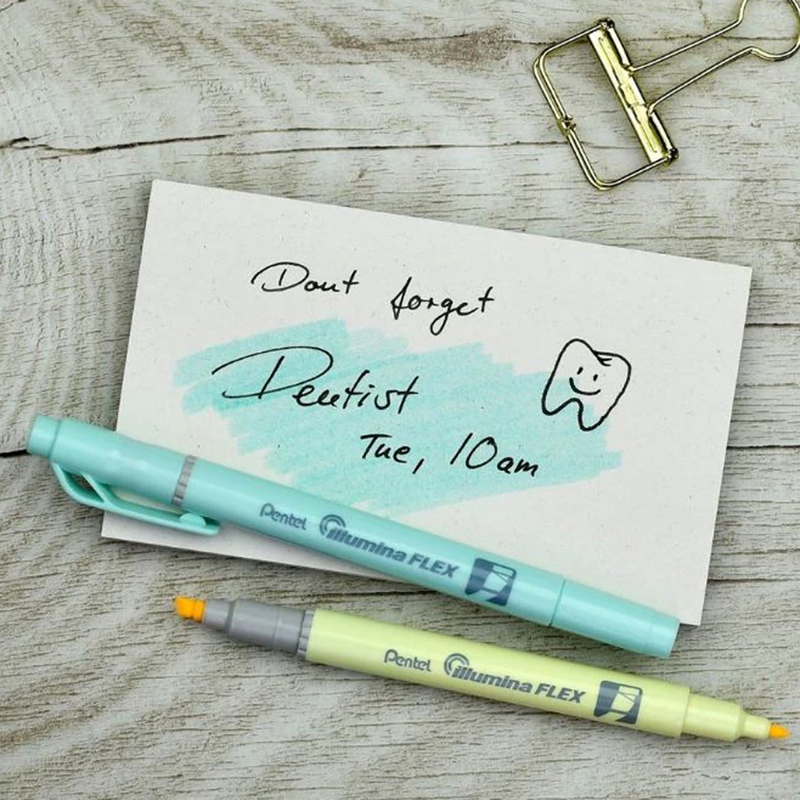 Dont forget
Dentist
Tue, 10am
Pentel illumina FLEX
Pentel illumina FLEX